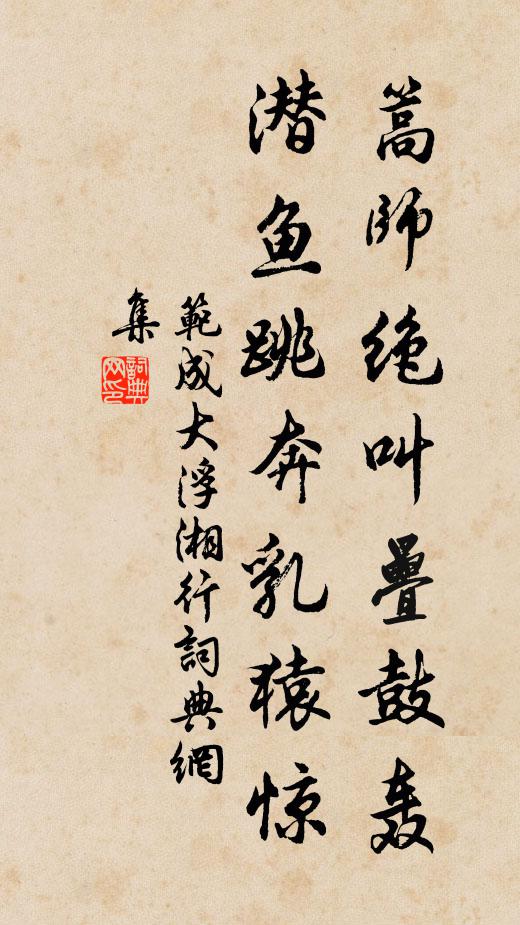 蒿師绝叫疊鼓轰
潜鱼跳奔乳猿惊
範成大浮湘行詞典網
集
詞典网印